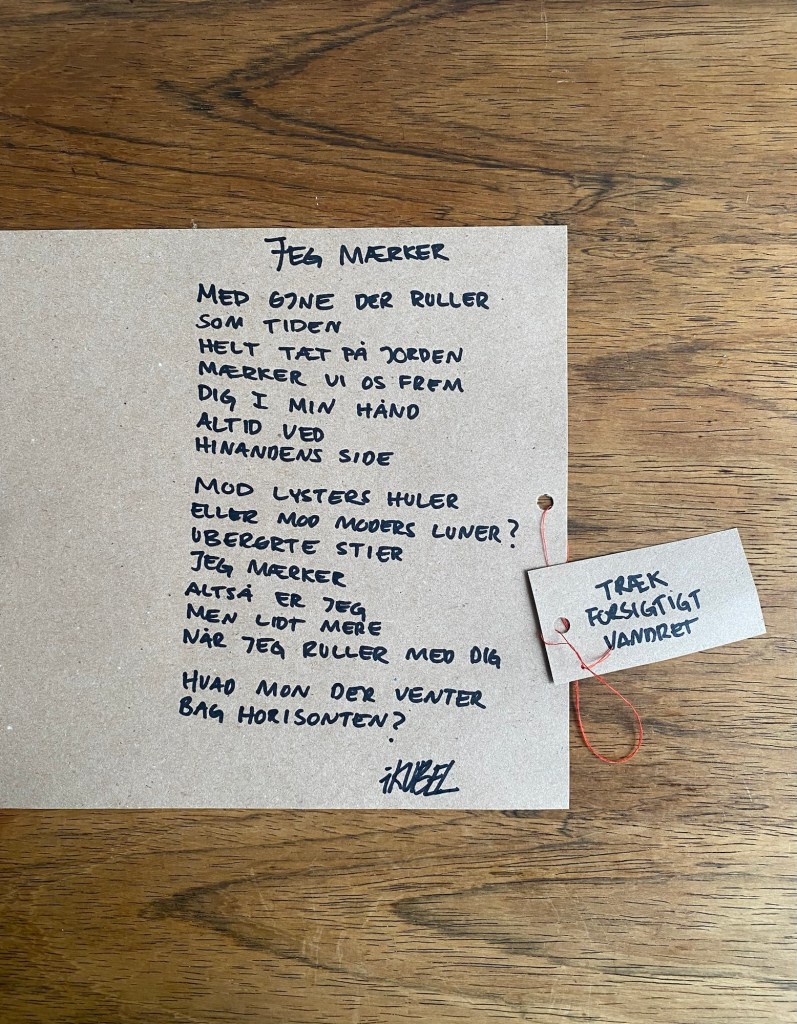 JEG MÆRKER
MED ØJNE DER RULLER
SOM TIDEN
HELT TÆT PÅ JORDEN
MÆRKER VI OS FREM
DIG I MIN HÅND
ALTID VED
HINANDENS SIDE
MOD LYSTERS HULER
ELLER MOD MODERS LUNER?
UBERØRTE STIER
JEG MÆRKER
ALTSÅ ER JEG
MEN LIDT MERE
NÅR JEG RULLER MED DIG
HVAD MON DER VENTER
BAG HORISONTEN?
iKUBEL
TRÆK
FORSIGTIGT
VANDRET